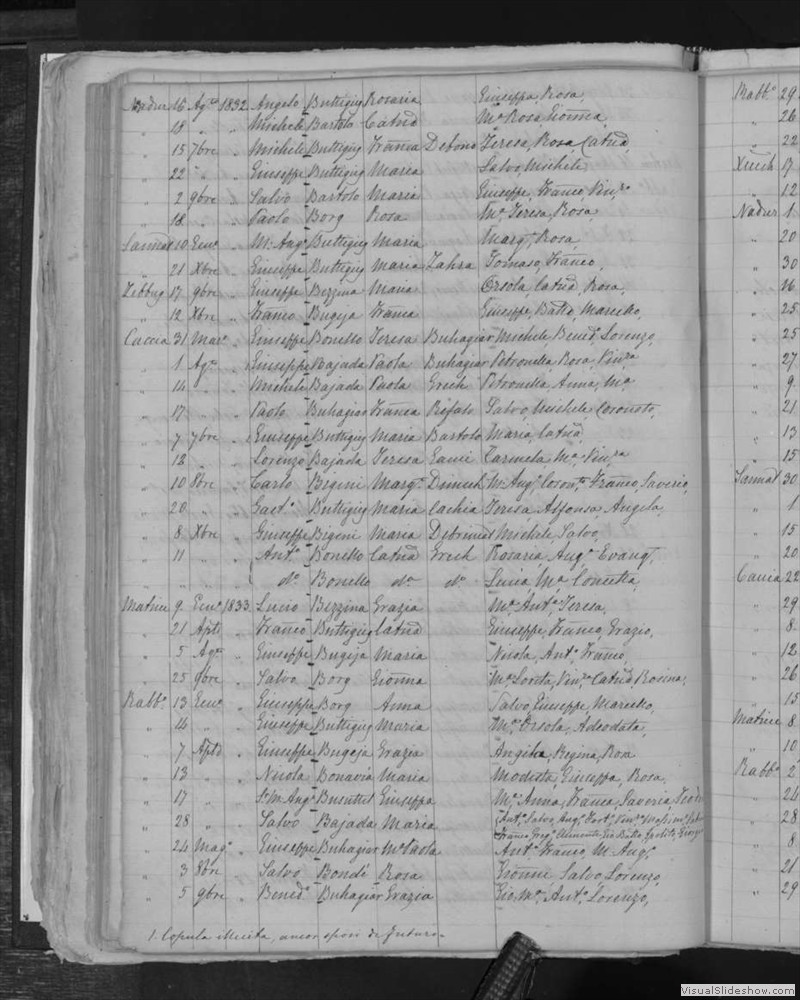 Nadur 16 Agto 1832 Angelo Buttigieg Rosaria Giuseppa, Rosa,
" 18 " " Michele Bartolo Catnd Ma Rosa, Gionna,
" 15 7bre " Michele Buttigieg Franca Debono Teresa, Rosa, Catnd
" 22 " " Giuseppe Buttigieg Maria Salvo, Michele
" 2 9bre " Salvo Bartolo Maria Giuseppe, Franco, Vinzo
" 18 " " Paolo Borg Rosa Ma Teresa, Rosa,
Sannat 10 Genn " M. Ango Buttigieg Maria Margt, Rosa,
" 21 Xbre " Giuseppe Buttigieg Maria Zahra Tomaso, Franco,
Zebbug 17 9bre " Giuseppe Bezzina Maria Orsola, Catnd, Rosa,
" 12 Xbre " Franco Bugeja Franca Giuseppe, Batta, Marcello,
Caccia 31 Marzo " Giuseppe Bonello Teresa Buhagiar Michele, Bened, Lorenzo,
" 1 Agto " Giuseppe Bajada Paola Buhagiar Petronilla, Rosa, Vinza
" 14 " " Michele Bajada Paola Grech Petronilla, Anna, Ma
" 17 " " Paolo Buhagiar Franca Refalo Salvo, Michele
" 7 7bre " Giuseppe Buttigieg Maria Bartolo Maria, Catnd,
" 12 " " Lorenzo Bajada Teresa Carmela, Ma, Vinza
" 10 8bre " Carlo Bigeni Margt Dimech M. Ango, Franco, Saverio,
" 20 " " Gaeto Buttigieg Maria Cachia Teresa, Alfonsa, Angela,
" 8 Xbre " Giuseppe Bigeni Maria Michele, Salvo,
" 11 " " Anto Bonello Catnd Grech Rosaria, Ango, Evangt,
" " " do Bonello do do Lucia, Ma, Concetta,
Matrice 9 Genn 1833 Lucio Bezzina Grazia Ma, Anta, Teresa,
" 21 Aple " Franco Buttigieg Catnd Giuseppe, Franco, Grazio,
" 5 Agto " Giuseppe Bugeja Maria Nicola, Anto, Franco,
" 25 9bre " Salvo Borg Gionna Ma, Loreta, Vinza, Catnd, Rosina,
Rabbo 13 Genn " Giuseppe Borg Anna Salvo, Giuseppe, Marcello,
" 16 " " Giuseppe Buttigieg Maria Ma, Orsola, Adeodata,
" 7 Aple " Giuseppe Bugeja Grazia Angela, Regina, Rosa
" 13 " " Nicola Bonavia Maria Modesta, Giuseppa, Rosa,
" 17 " " M. Ango Busuttil Giuseppa Ma, Anna, Franca, Saveria,
" 28 " " Salvo Bajada Maria Anto, Salvo, Ango,
Franco,
" 24 Mago " Giuseppe Buhagiar Ma Paola Anto, Franco, M. Ango,
" 3 8bre " Salvo Bondi Rosa Gionni, Salvo, Lorenzo,
" 5 9bre " Bened Buhagiar Grazia Gio, Ma, Anto, Lorenzo,
1. Copula illecita, ancor sposi de futuro
Rabbo 29
" 26
" 22
Xeuch 17
" 12
Nadur 1
" 20
" 30
" 16
" 25
" 25
" 27
" 9
" 21
" 13
" 15
Sannat 30
" 1
" 15
" 20
Caccia 22
" 29
" 8
" 12
" 26
" 15
Matrice 8
" 10
Rabbo 2
" 24
" 28
" 8
" 21
" 29
VisualSlideshow.com